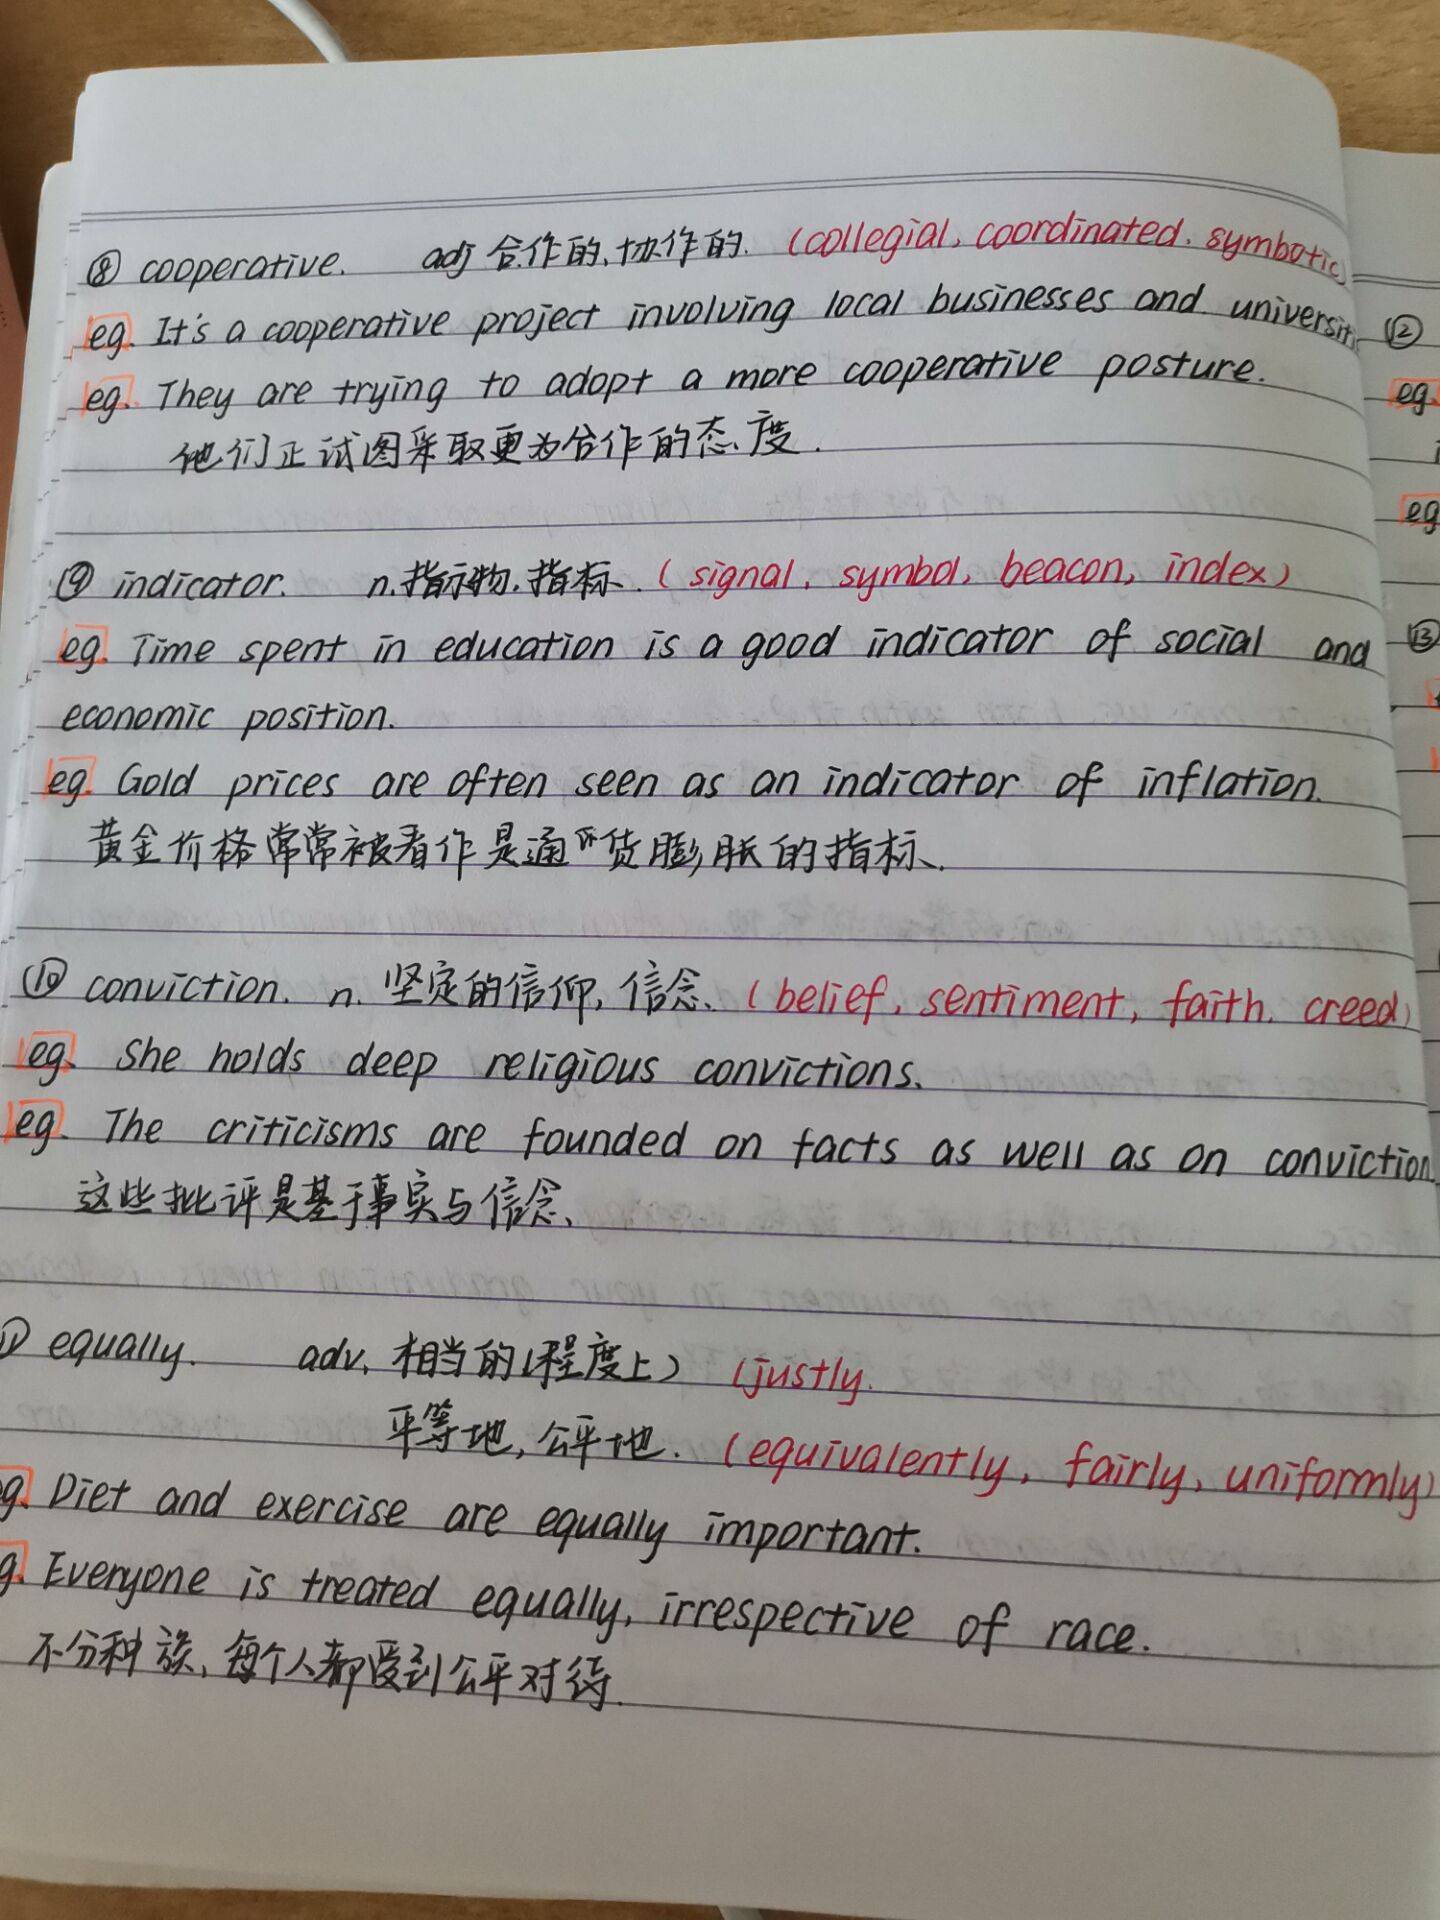 ⑧ cooperative. adj 合作的,协作的. (collegial, coordinated, symbotic)
eg. It's a cooperative project involving local businesses and universit
eg. They are trying to adopt a more cooperative posture.
他们正试图采取更为合作的态度.
⑨ indicator. n.指示物.指标. (signal, symbol, beacon, index)
eg. Time spent in education is a good indicator of social and
economic position.
eg. Gold prices are often seen as an indicator of inflation.
黄金价格常常被看作是通货膨胀的指标.
⑩ conviction. n. 坚定的信仰, 信念. (belief, sentiment, faith, creed)
eg. She holds deep religious convictions.
eg. The criticisms are founded on facts as well as on conviction.
这些批评是基于事实与信念.
⑪ equally. adv. 相当的(程度上) (justly.
平等地, 公平地. (equivalently, fairly, uniformly)
eg. Diet and exercise are equally important.
eg. Everyone is treated equally, irrespective of race.
不分种族, 每个人都受到公平对待.
⑫
eg.
eg
⑬